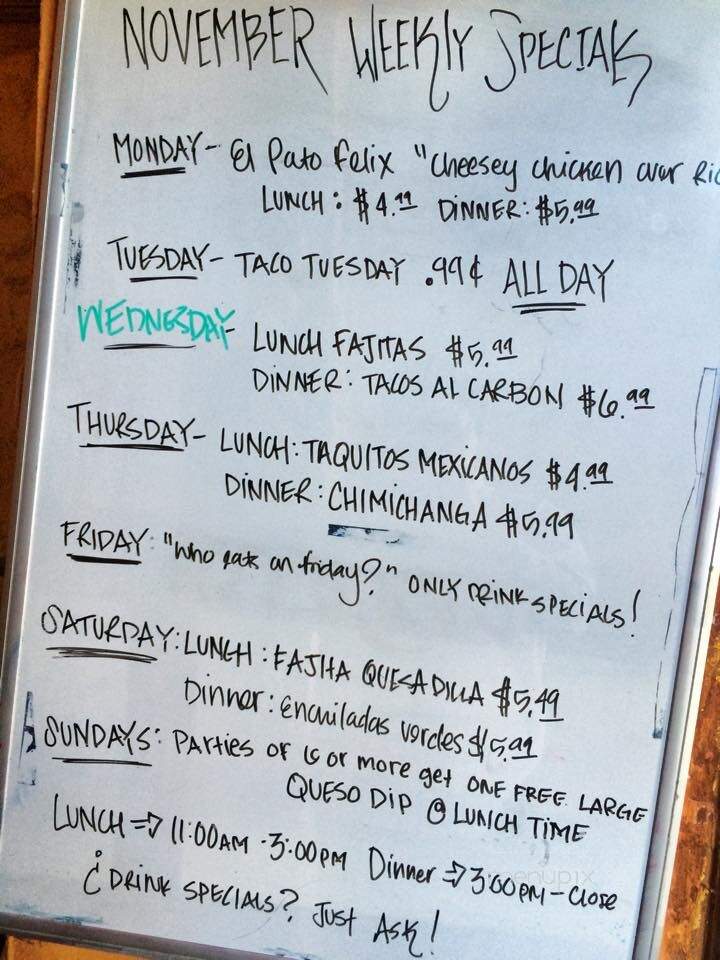 NOVEMBER WEEKLY SPECIALS
MONDAY- El Pato Felix "Cheesey chicken over Ric
LUNCH: $4.99 DINNER: $5.99
TUESDAY- TACO TUESDAY .99¢ ALL DAY
WEDNESDAY- LUNCH FAJITAS $5.99
DINNER: TACOS AL CARBON $6.99
THURSDAY- LUNCH: TAQUITOS MEXICANOS $4.99
DINNER: CHIMICHANGA $5.99
FRIDAY: "Who eats on friday?" ONLY DRINK SPECIALS!
SATURDAY: LUNCH: FAJITA QUESADILLA $5.49
Dinner: enchiladas verdes $5.99
SUNDAYS: PARTIES OF 6 or more get ONE FREE LARGE
QUESO DIP @ LUNCH TIME
LUNCH ⇒ 11:00AM - 3:00PM Dinner ⇒ 3:00PM - Close
¿ DRINK SPECIALS? Just Ask!
menupix